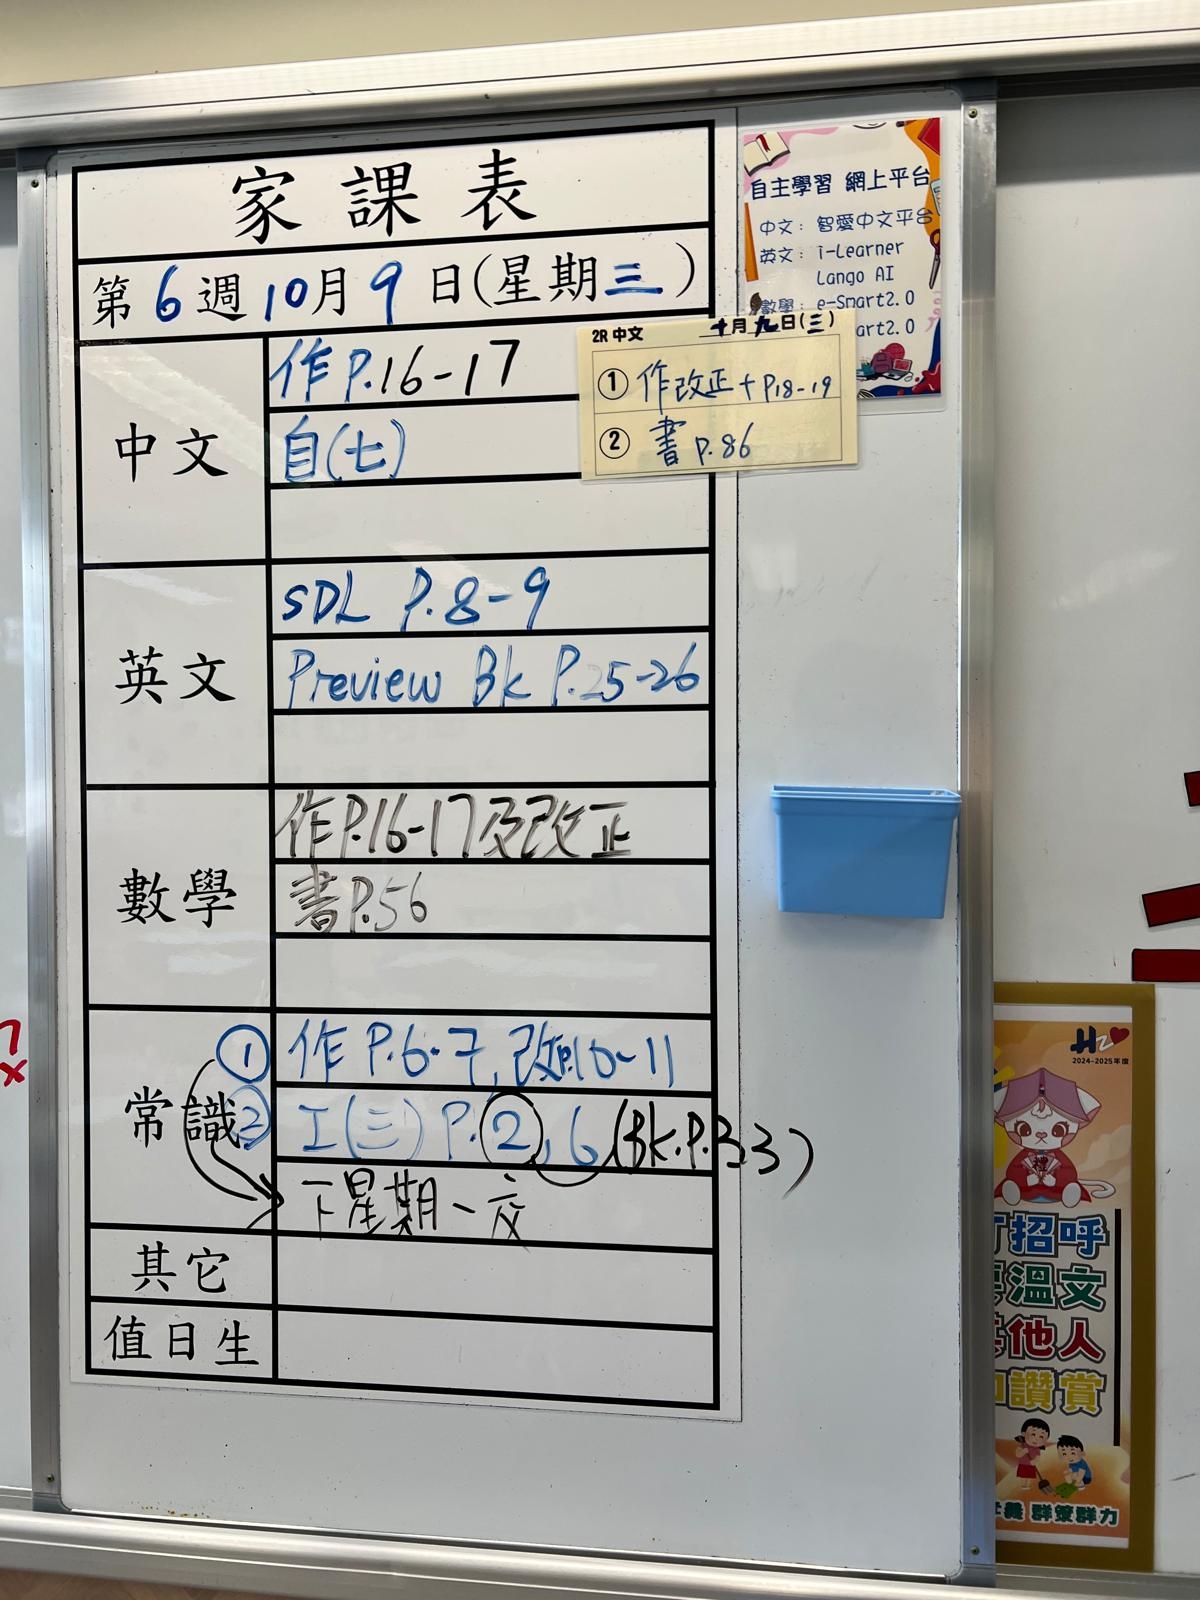 家課表
第6週10月9日(星期三)
中文
作P.16-17
自(七)
2R 中文 十月九日(三)
① 作改正+P18-19
② 書 p.86
英文
SDL P.8-9
Preview Bk P.25-26
數學
作P.16-17及改正
書P.56
常識
① 作 P.6-7, 改P.10-11
② 工(三) P.2, 6 (Bk.P.33)
下星期一交
其它
值日生
自主學習 網上平台
中文: 智愛中文平台
英文: i-Learner
Lango AI
數學: e-Smart2.0
art2.0
2024-2025年度
禮
招呼
溫文
他人
讚賞
群策群力